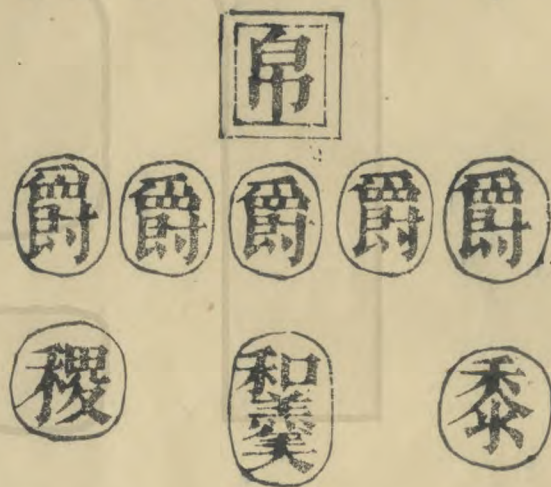 帛
爵 爵 爵 爵 爵
黍 和羹 稷